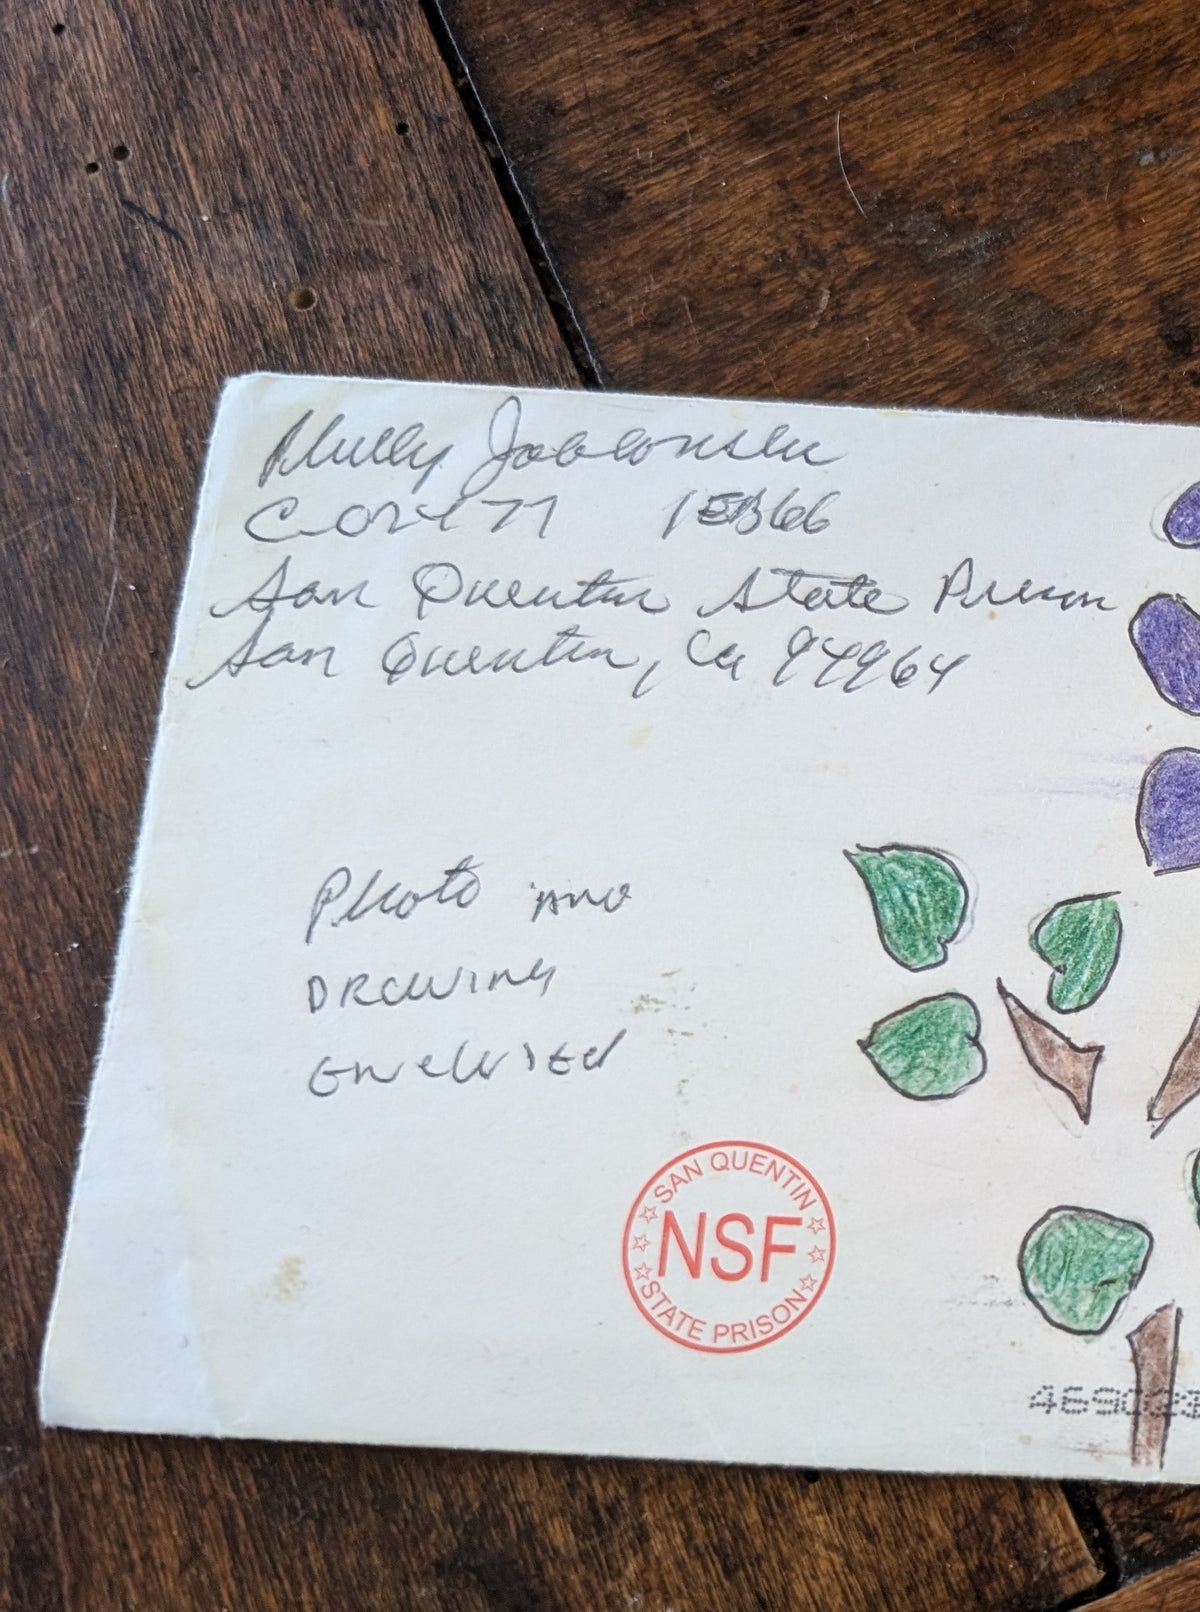 Phillip Jablonski
C02477 1EB66
San Quentin State Prison
San Quentin, Ca 94964
Photo AND
DRAWING
ENCLOSED
SAN QUENTIN
NSF
STATE PRISON